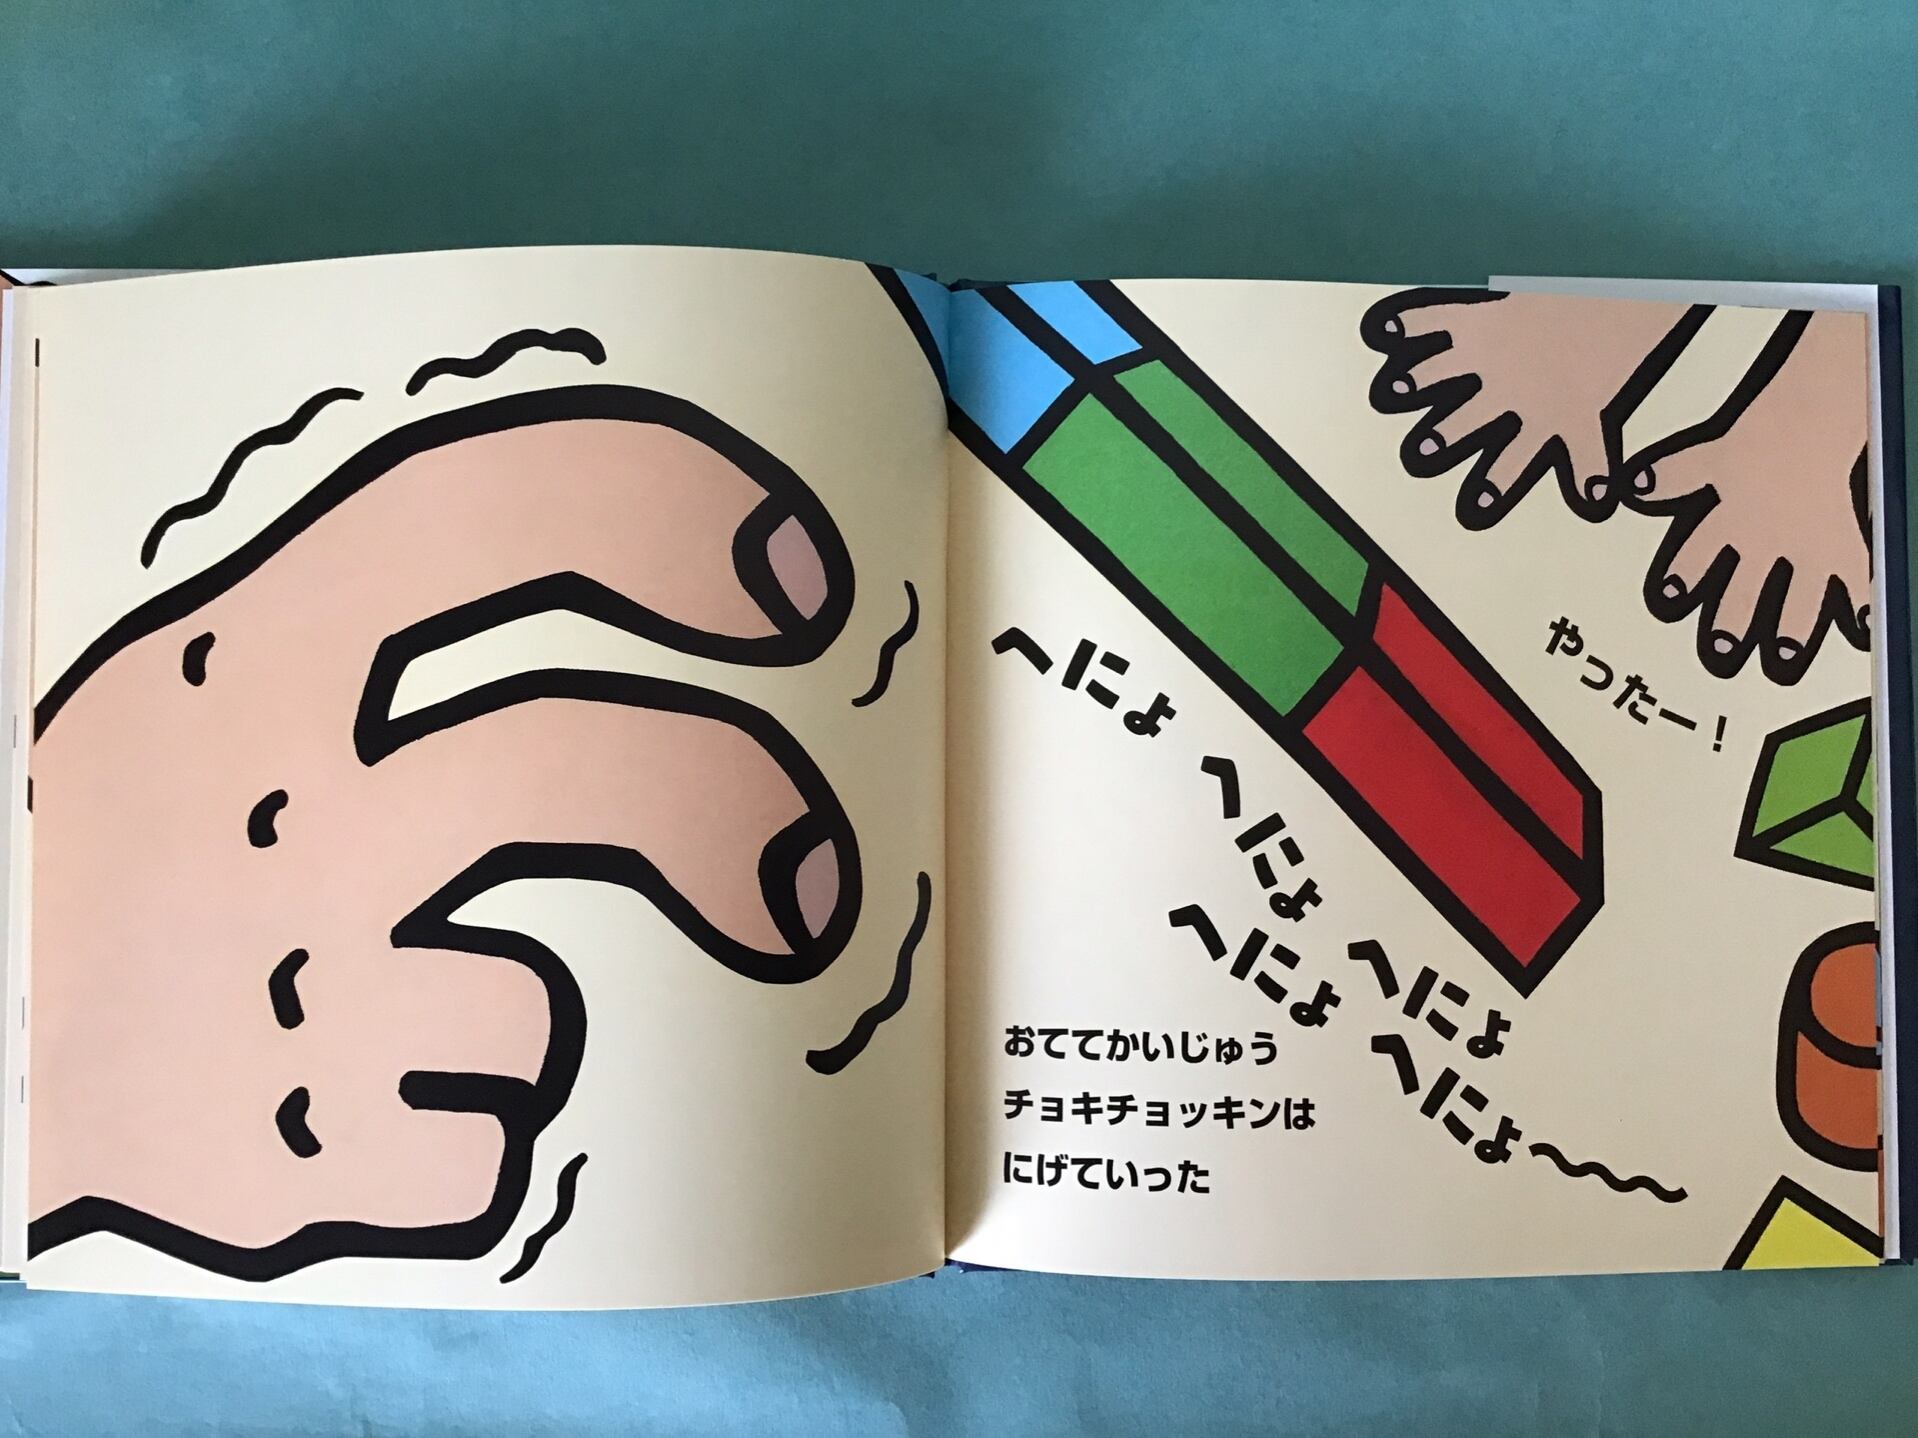 やったー！
へにょ
へにょ
へにょ
へにょ
へにょ～～～
おててかいじゅう
チョキチョッキンは
にげていった